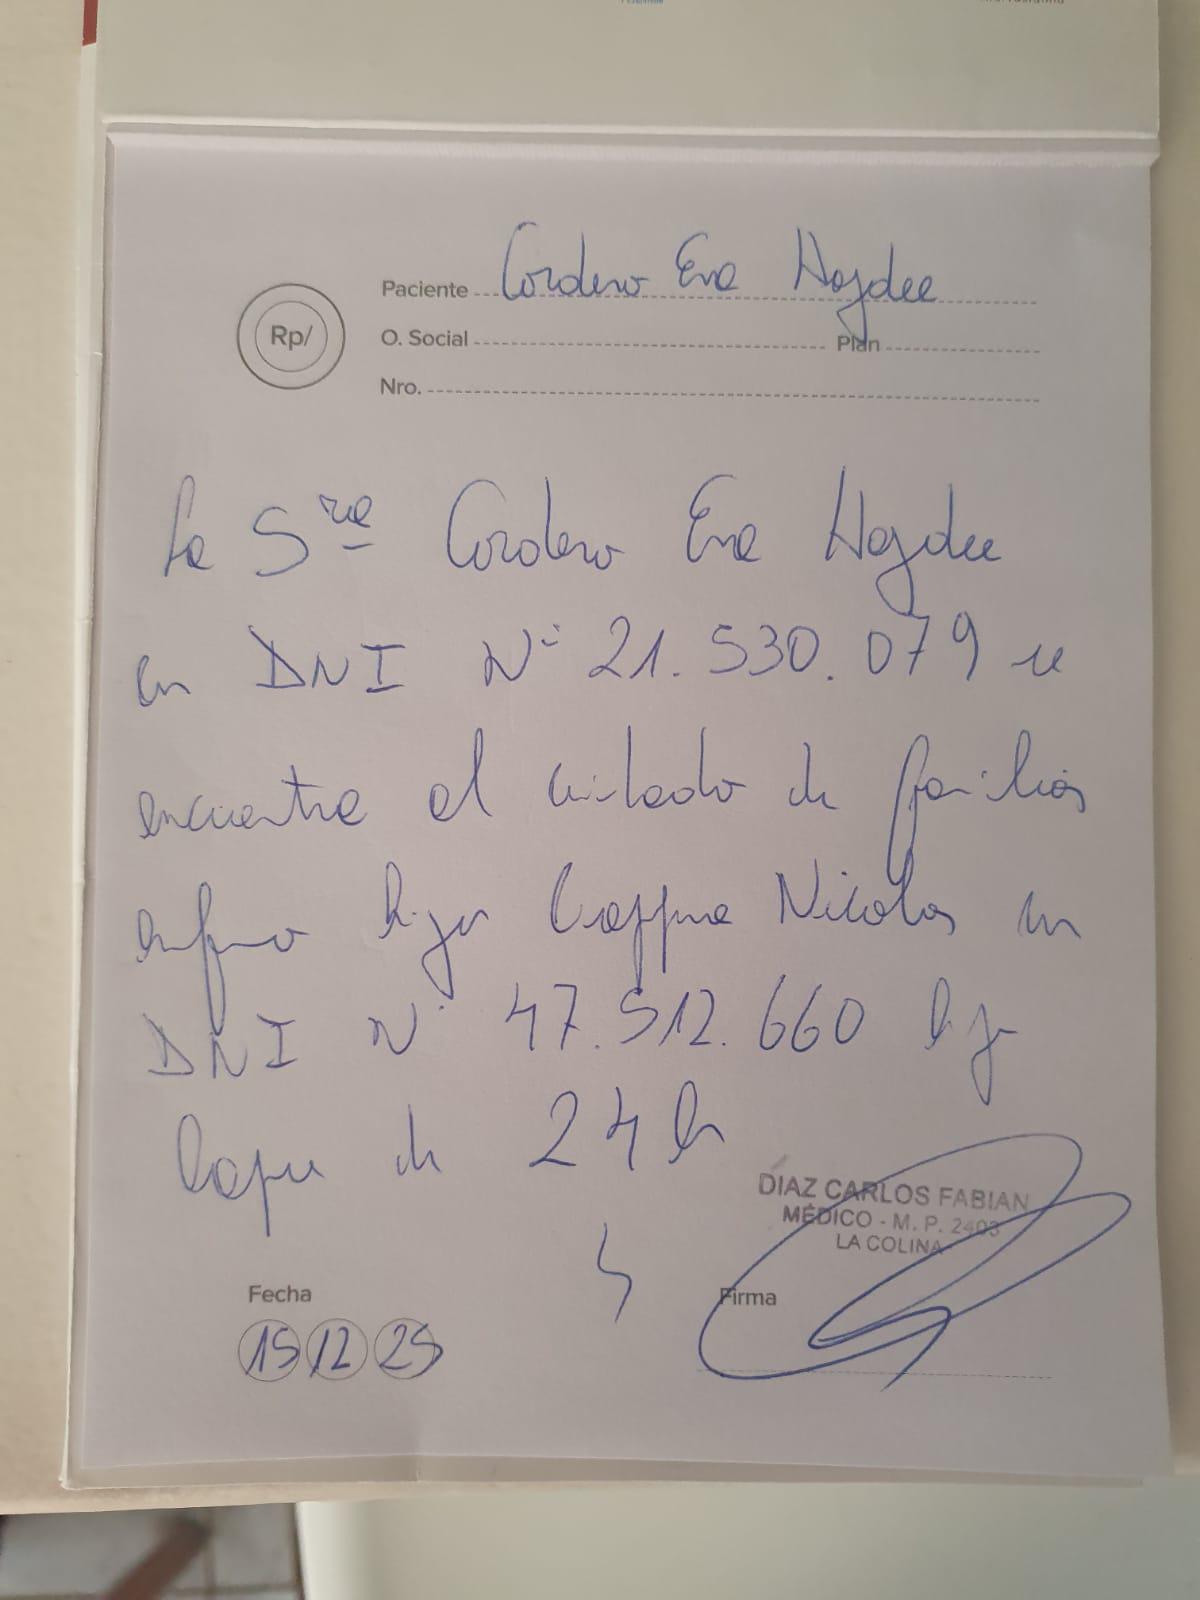 Paciente Cordero Eva Haydee
Rp/
O. Social Plan
Nro.
La Sra Cordero Eva Haydee
con DNI Nº 21.530.079 se
encuentra al cuidado de familiar
enfermo hijo Nicolas con
DNI Nº 47.512.660 hijo
de 24 h
DIAZ CARLOS FABIAN
MÉDICO - M. P. 2403
LA COLINA
Fecha
Firma
15 12 25